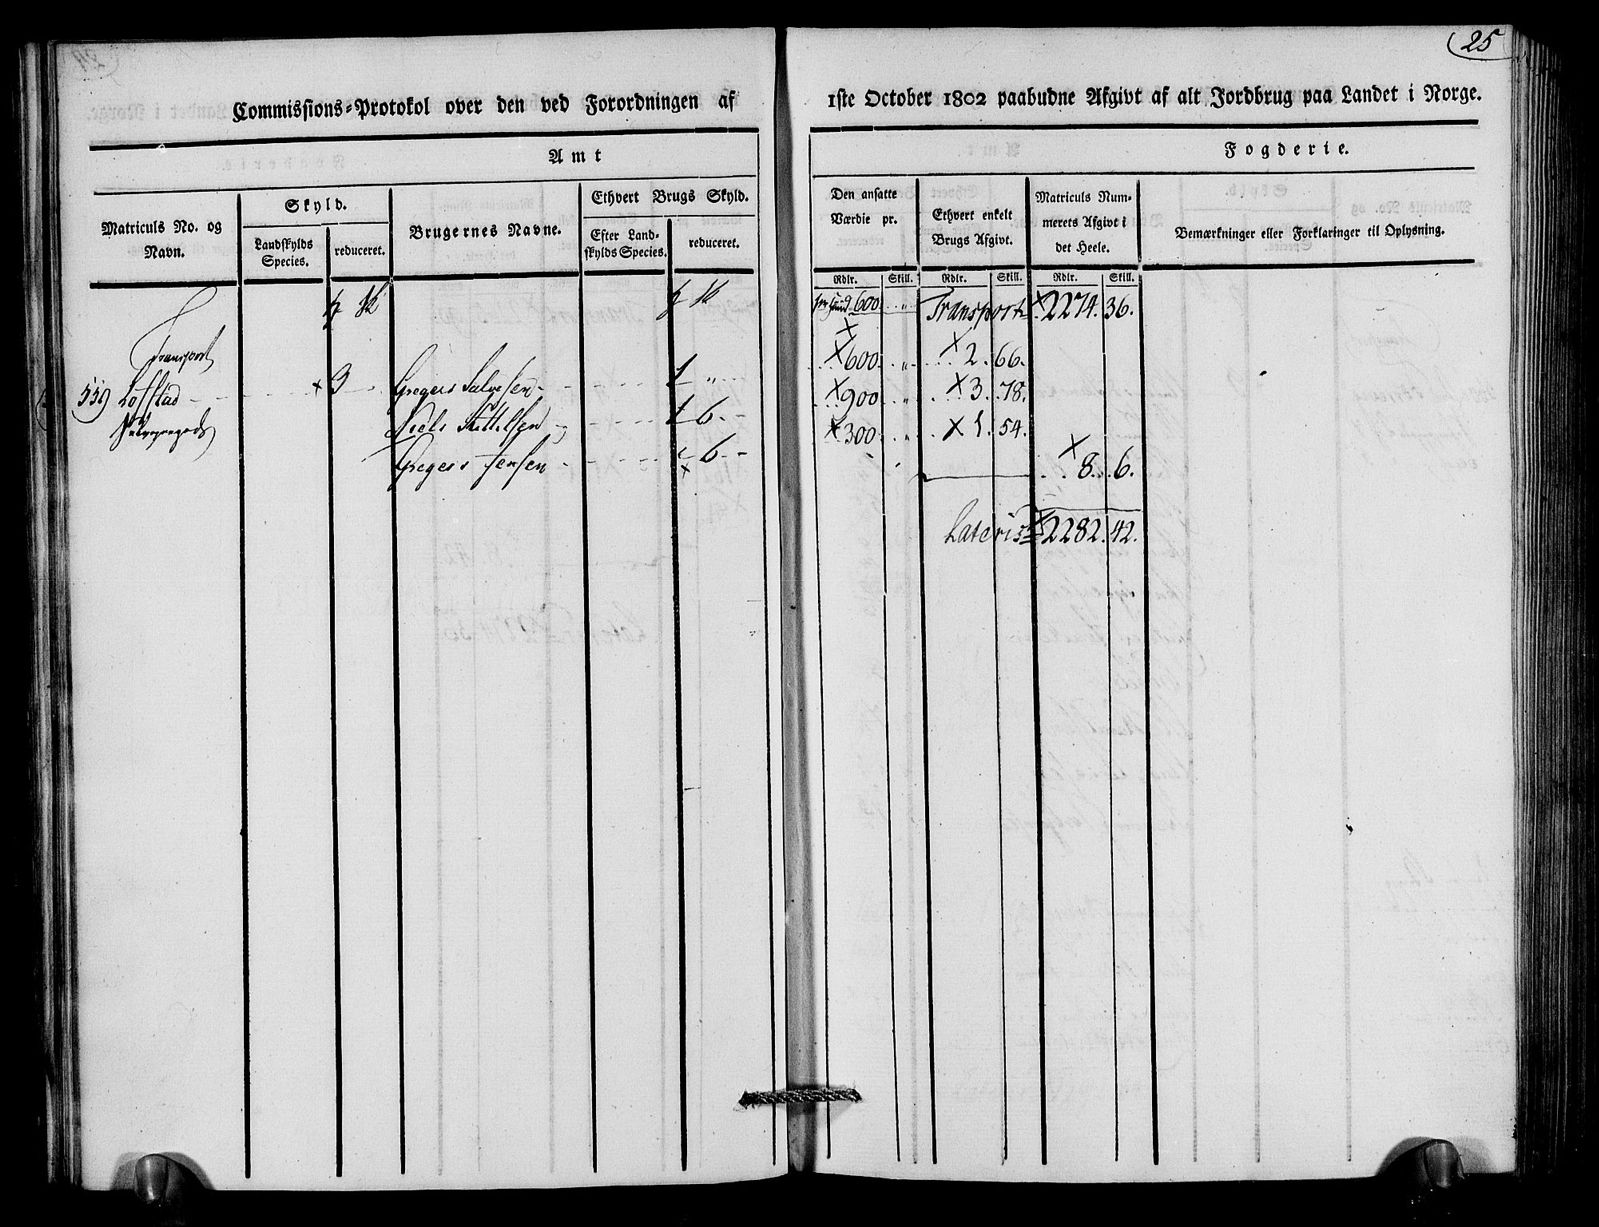 25
Commissions-Protokol over den ved Forordningen af 1ste October 1802 paabudne Afgivt af alt Jordbrug paa Landet i Norge.
Amt
Fogderie.
Matriculs No. og Navn.
Skyld.
Landskylds Species.
reduceret.
Brugernes Navne.
Ethvert Brugs Skyld.
Efter Landskylds Species.
reduceret.
Den ansatte Værdie pr.
Ethvert enkelt Brugs Afgivt.
Matriculs Nummerets Afgivt i det Heele.
Bemærkninger eller Forklaringer til Oplysning.
Rdlr. Skill. Rdlr. Skill. Rdlr. Skill.
600 " Transport 2274. 36.
Transport
600 " 2. 66.
559 Løfstad 3 Gregers Salvesen 1 "
900 " 3. 78.
Niels Kittelsen 1 6
300 " 1. 54.
Gregers Jensen 6
8. 6.
Lateris 2282. 42.